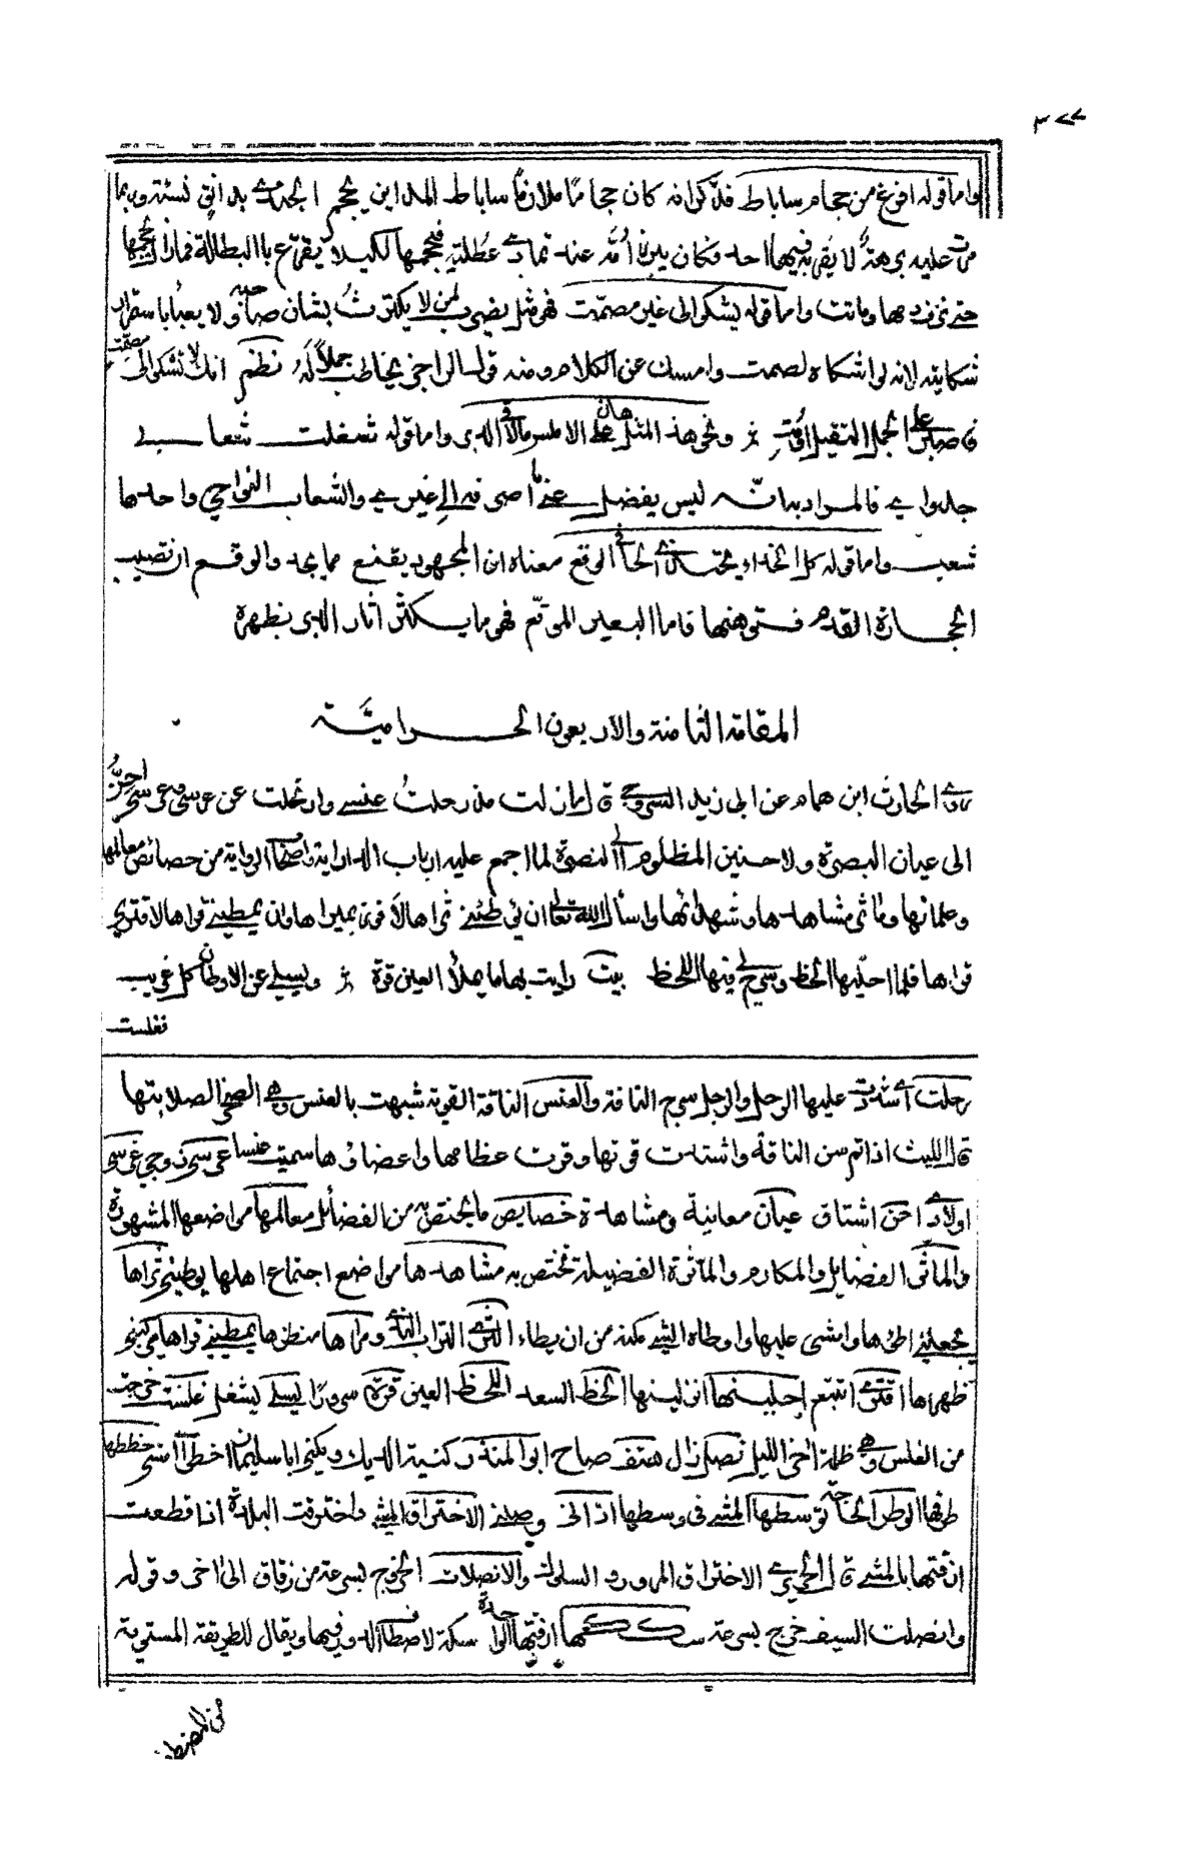 ٣٧٧
واما قوله افرغ من حجام ساباط فذكر انه كان حجاما ملازما ساباط المداين يحجم الجندي بدانق نسئة وربما
مرت عليه برهة لا يقربه فيها احد فكان يبرز امه عند تمادي عطلته فيحجمها لكيلا يقرع بالبطالة فما زال يحجمها
حتى نزف دمها وماتت واما قوله يشكو الى غير مصمت فهو مثل يضرب لمن لا يكترث بشان صاحبه ولا يعبأ باستمرار
شكايته لانه لو اشكاه لصمت وامسك عن الكلام ومنه قول الراجز يخاطب جملاً له نظم انك لا تشكو الى مصمت
فاصبر على الحمل الثقيل او مت ونحو هذا المثل هان على الاملس ما لاقى الدبر واما قوله شغلت شعابي
جدواي فالمراد به انه ليس يفضل عني ما اصرفه الى غيري والشعاب النواحي واحدها
شعب واما قوله كل الحذاء يحتذي الحافي الوقع معناه ان المجهود يقنع مما يجد والوقع ان تصيب
الحجارة القدم فتوهنها فاما البعير الموقع فهو ما يكثر اثار الدبر بظهره
المقامة الثامنة والاربعون الحرامية
روى الحارث ابن همام عن ابي زيد السروجي قال ما زلت مذ رحلت عنسي وارتحلت عن عرسي وغرسي احن
الى عيان البصرة ولا حنين المظلوم الى النصرة لما اجمع عليه ارباب الدراية واصحاب الرواية من خصائص معالمها
وعلمائها ومآثر مشاهدها وشهدائها واسأل الله تعالى ان يوطئني ثراها لافوز بمراها وان يمطيني قراها لاقتري
قراها فلما احلنيها الحظ وسرح لي فيها اللحظ بيت رايت بها ما يملأ العين قرة ويسلي عن الاوطان كل غريب
فغلست
رحلت اي شددت عليها الرحل والرحل سرج الناقة والعنس الناقة القوية شبهت بالعنس وهي الصخر لصلابتها
قال الليث اذا تم سن الناقة واشتدت قوتها ووفرت عظامها واعضاؤها سميت عنسا عرسي زوجي غرسي
اولادي احن اشتاق عيان معاينة ومشاهدة خصايص ما يختص به من الفضائل معالمها مواضعها المشهورة
والمآثر الفضايل والمكارم والمآثرة الفضيلة تختص به مشاهدها مواضع اجتماع اهلها يوطيني ثراها
يجعلني اطؤها وامشي عليها واوطاه الشي مكنه من ان يطاه الثرى التراب الندي ومراها منظرها يمطيني قراها يركبني
ظهراها اقتري اتتبع احلنيها انزلنيها الحظ السعد اللحظ العين قرة سرورا يسلي يشغل غلست خرجت
من الغلس وهي ظلمة اخر الليل نصل زال هتف صاح ابو المنذر كنية الديك ويكنى ابا سليمان اخطو امشي خططها
طرقها الوطر الحاجة توسطها المشي في وسطها ادانى وصلني الاختراق المشي واخترقت البلدة اذا قطعت
ازقتها بالمشي قال الحريري الاختراق المرور والسلوك والانصلات الخروج بسرعة من زقاق الى اخر وقوله
وانصلت السيف خرج بسرعة سككها ازقتها الواحدة سكة لاصطفاف الدور فيها ويقال للطريقة المستوية